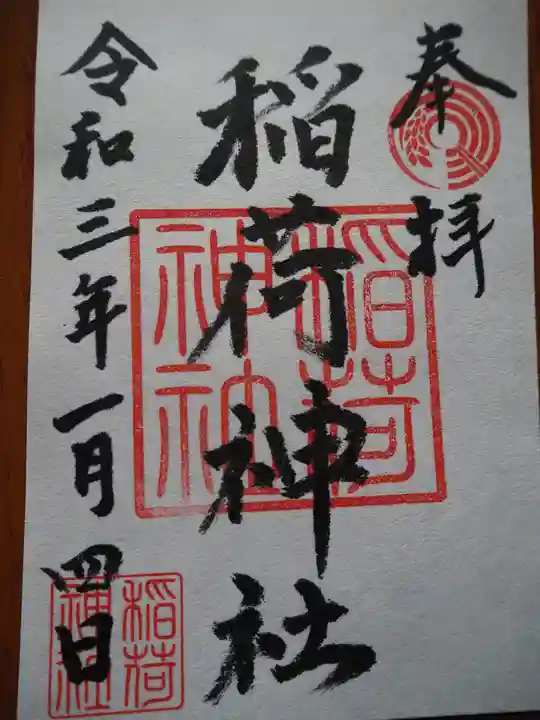 奉拝
稲荷神社
稲荷
神社
令和三年一月四日
稲荷
神社